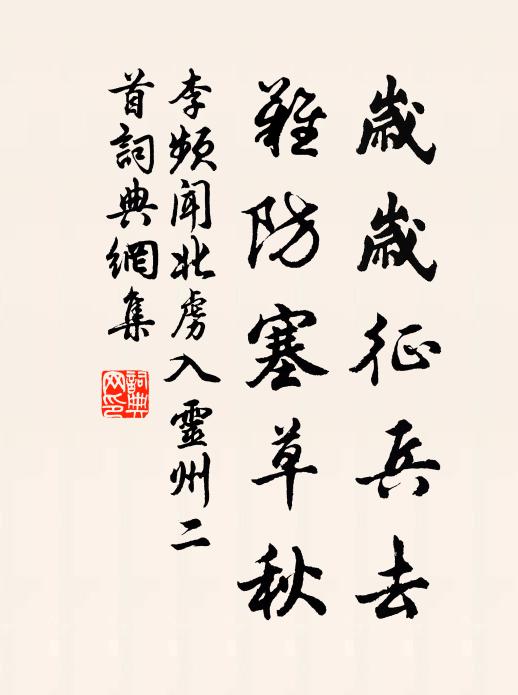 歲歲征兵去
難防塞草秋
李頻聞北虜入靈州二
首詞典網集
詞典
网印